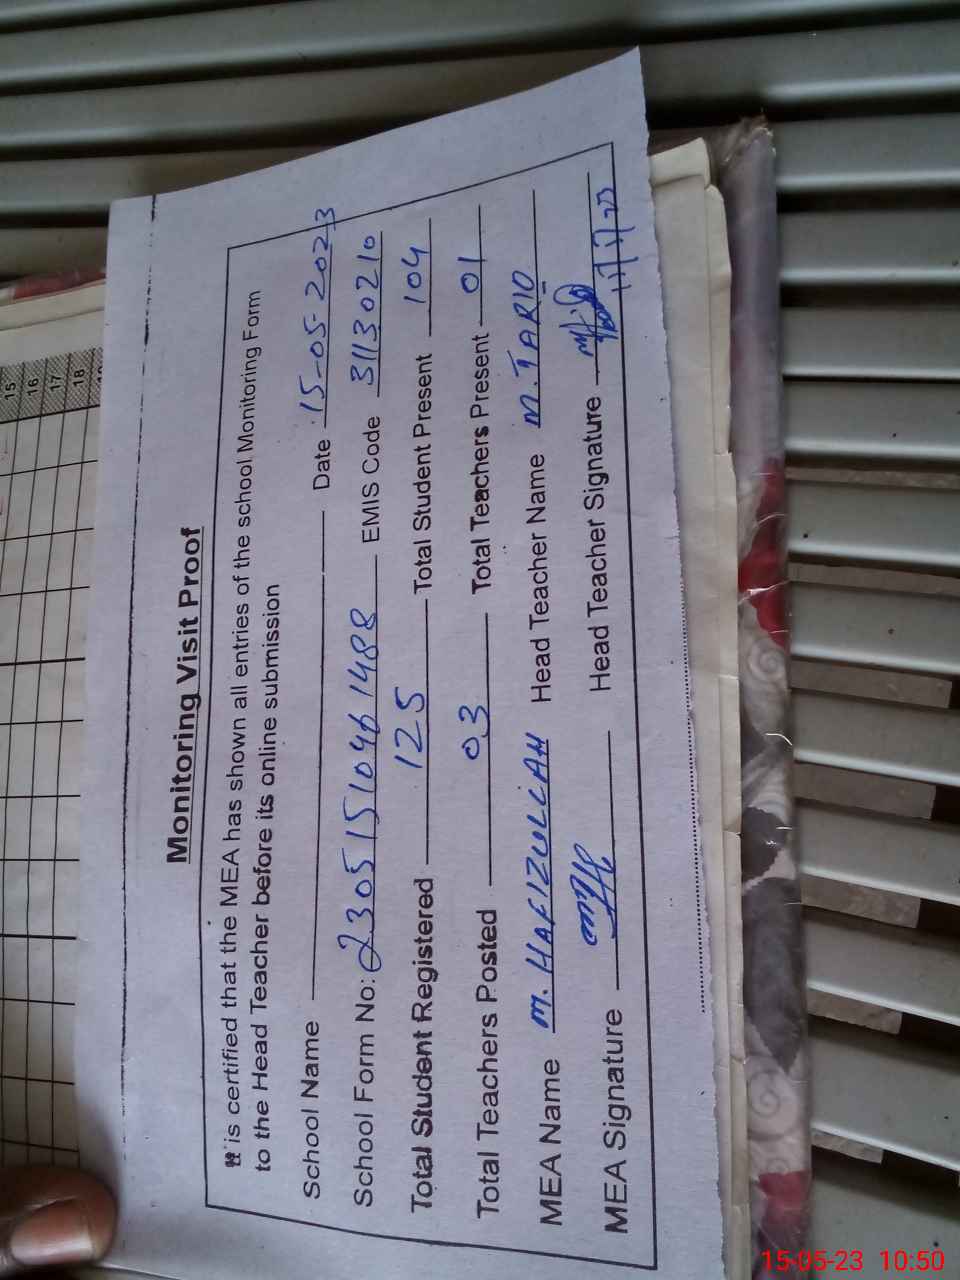 Monitoring Visit Proof
It is certified that the MEA has shown all entries of the school Monitoring Form
to the Head Teacher before its online submission
School Name Date 15-05-2023
School Form No: 23051510461488 EMIS Code 31130210
Total Student Registered 125 Total Student Present 104
Total Teachers Posted 03 Total Teachers Present 01
MEA Name M. HAFIZULLAH Head Teacher Name M. TARIQ
MEA Signature Head Teacher Signature
15
16
17
18
15-05-23 10:50